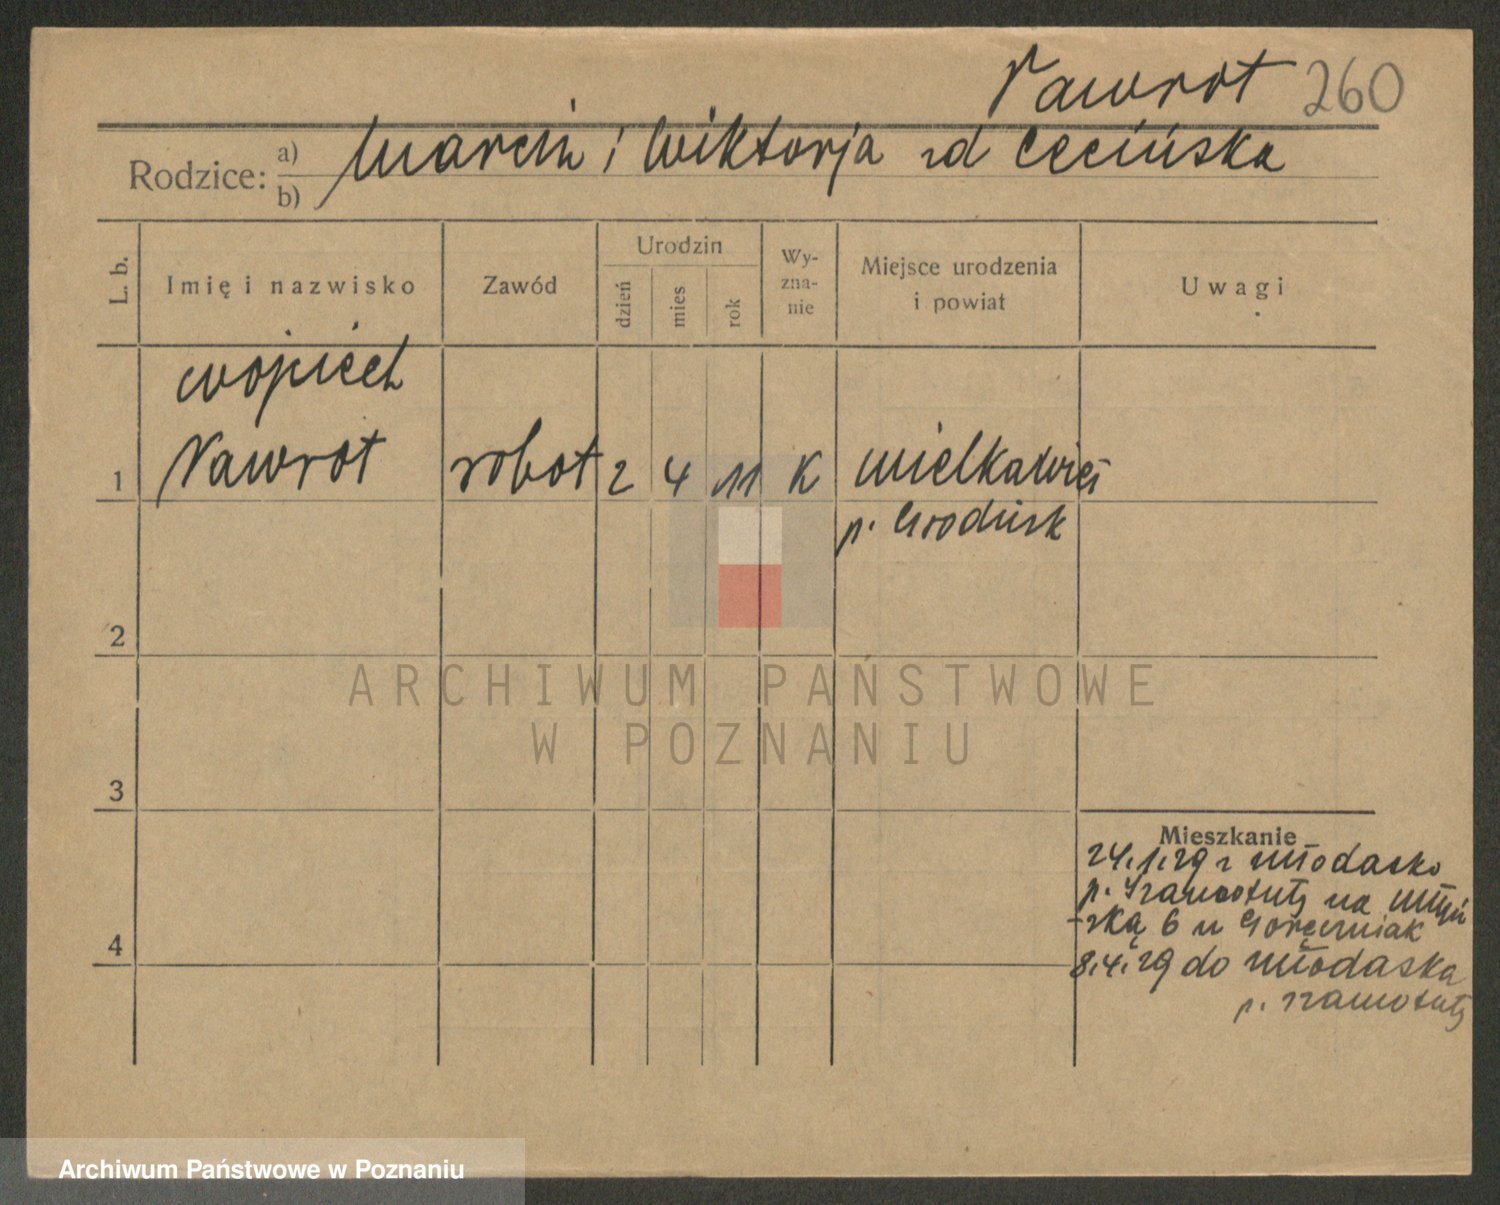 Nawrot 260
Rodzice: a) b) Marcin i Wiktorja zd Cecińska
L. b.
Imię i nazwisko
Zawód
Urodzin
dzień
mies
rok
Wy-
zna-
nie
Miejsce urodzenia
i powiat
Uwagi
Wojciech
1 Nawrot robot 2 4 11 K Wielkawieś
p. Grodzisk
2
ARCHIWUM PAŃSTWOWE
W POZNANIU
3
Mieszkanie
24.1.29 z Młodasko
p. Szamotuły na Młyń
-ską 6 u Goreczniak
4
8.4.29 do Młodaska
p. Szamotuły
Archiwum Państwowe w Poznaniu